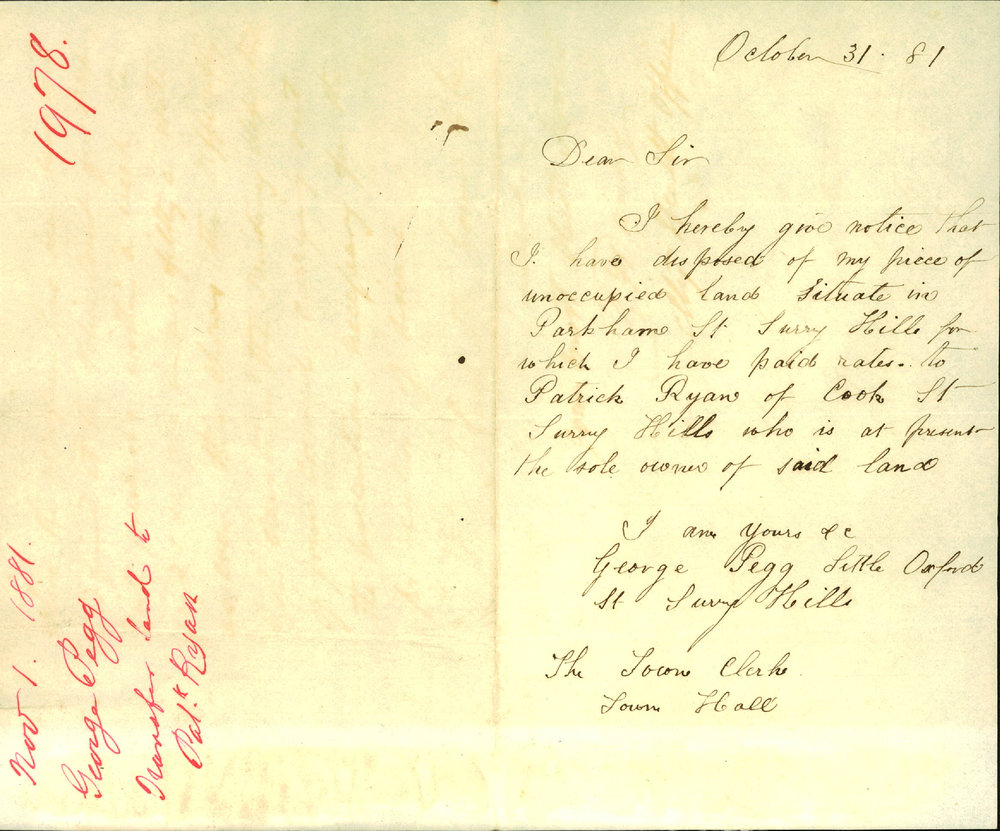 1978.
Nov 1. 1881.
George Pegg
Transfer land to
Pat.k Ryan
October 31. 81
Dear Sir
I hereby give notice that
I have disposed of my piece of
unoccupied land situate in
Parkham St Surry Hills for
which I have paid rates. to
Patrick Ryan of Cook St
Surry Hills who is at present
the sole owner of said land
I am Yours &c
George Pegg Little Oxford
St Surry Hills
The Town Clerk
Town Hall